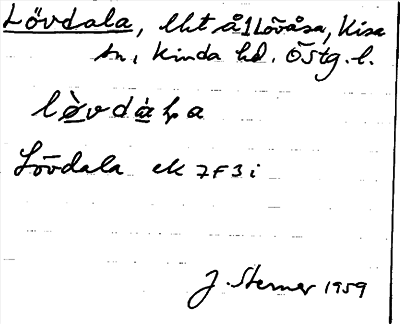 Lövdala, lht å Lövåsa, Kisa
sn, Kinda hd. Östg. l.
Lövdala ek 7F3i
J. Sterner 1959